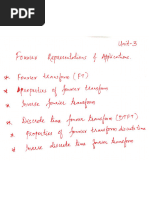 Unit-3
Fourier Representations & Applications.
* Fourier transform (FT)
* properties of fourier transform
* Inverse fourier transform
* Discrete time fourier transform (DTFT)
* properties of fourier transform discrete time
* Inverse discrete time fourier transform